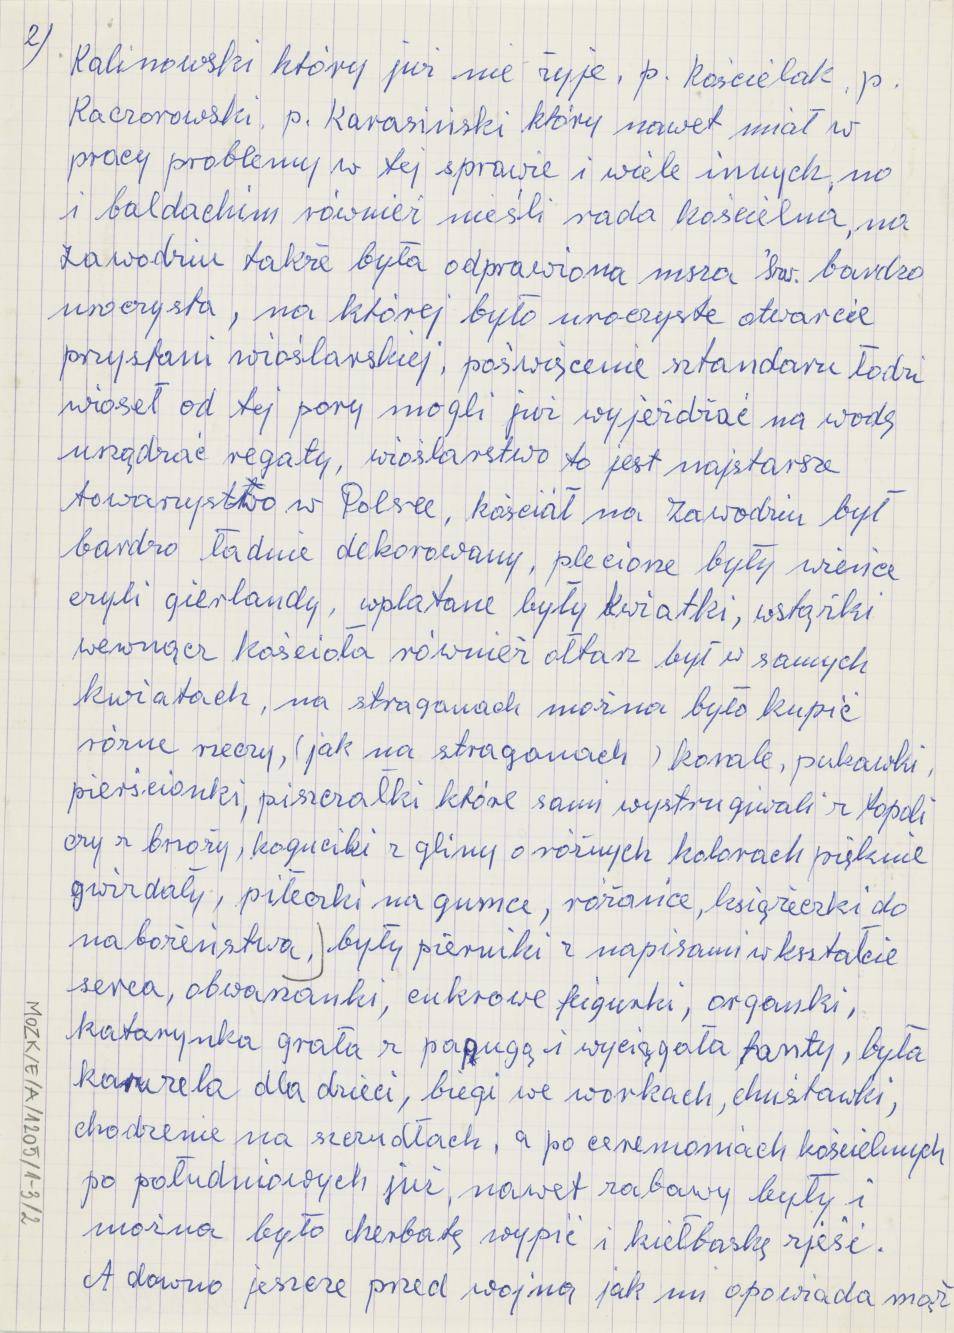 2)
Kalinowski który już nie żyje, p. Kościelak, p.
Kaczorowski, p. Karasiński który nawet miał w
pracy problemy w tej sprawie i wiele innych, no
i baldachim również nieśli rada kościelna, na
Zawodziu także była odprawiona msza św. bardzo
uroczysta, na której było uroczyste otwarcie
przystani wioślarskiej, poświęcenie sztandaru łodzi
wioseł od tej pory mogli już wyjeżdżać na wodę
urządzać regaty, wioślarstwo to jest najstarsze
towarzystwo w Polsce, kościół na Zawodziu był
bardzo ładnie dekorowany, plecione były wieńce
czyli gierlandy, wplatane były kwiatki, wstążki
wewnącz kościoła również ołtarz był w samych
kwiatach, na straganach można było kupić
różne rzeczy, (jak na straganach) korale, pukawki,
pierścionki, piszczałki które sami wystrugiwali z topoli
czy z brzozy, koguciki z gliny o różnych kolorach pięknie
gwizdały, piłeczki na gumce, różańce, książeczki do
nabożeństwa, ) były pierniki z napisami w kształcie
serca, obwarzanki, cukrowe figurki, organki,
katarynka grała z papugą i wyciągała fanty, była
karuzela dla dzieci, biegi we workach, chuśtawki,
chodzenie na szczudłach, a po ceremoniach kościelnych
po południowych już, nawet zabawy były i
można było cherbatę wypić i kiełbaskę zjeść.
A dawno jeszcze przed wojną jak mi opowiada mąż
MOZK/E/A/1205/1-3/2